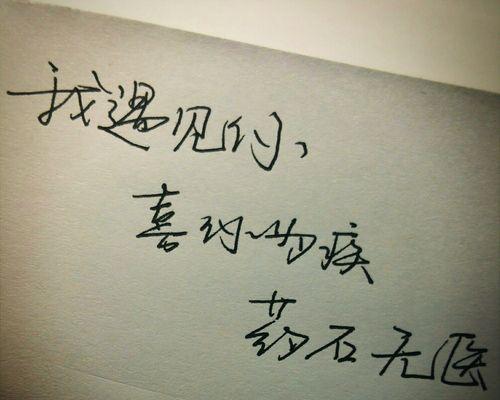 我遇见你,
喜约如疾
药石无医